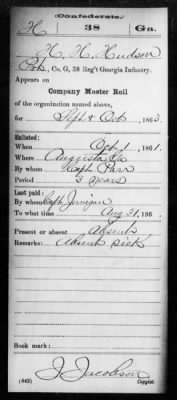 Confederate.
H 38 Ga.
H. H. Hudson
Pvt, Co. G, 38 Reg't Georgia Infantry.
Appears on
Company Muster Roll
of the organization named above,
for Sept & Oct, 1863.
Enlisted:
When Oct 1, 1861.
Where Augusta Ga
By whom Capt Farr
Period 3 years
Last paid:
By whom Capt Jernigan
To what time Aug 31, 186
Present or absent Absent
Remarks: Absent sick
Book mark:
J. Jacobson
(642) Copyist.